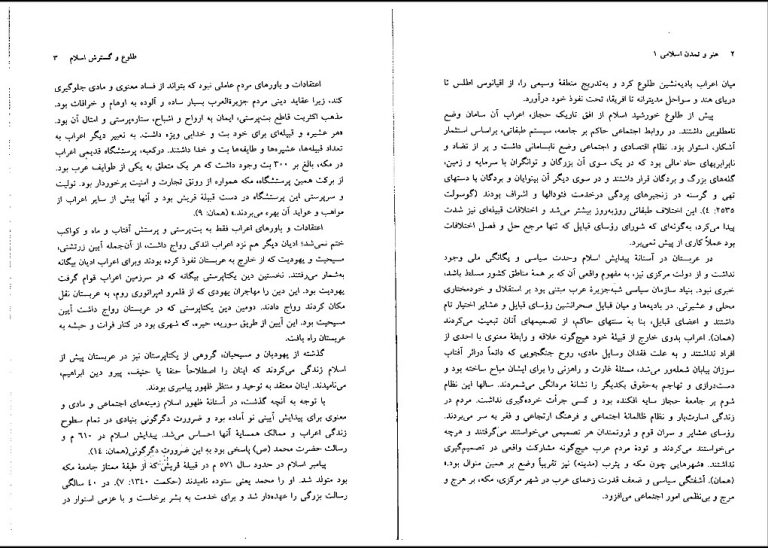 ۲ هنر و تمدن اسلامی ۱
میان اعراب بادیه‌نشین طلوع کرد و به‌تدریج منطقهٔ وسیعی را، از اقیانوس اطلس تا
دریای هند و سواحل مدیترانه تا افریقا، تحت نفوذ خود درآورد.
پیش از طلوع خورشید اسلام از افق تاریک حجاز، اعراب آن سامان وضع
نامطلوبی داشتند. در روابط اجتماعی حاکم بر جامعه، سیستم طبقاتی، براساس استثمار
آشکار، استوار بود. نظام اقتصادی و اجتماعی وضع نابسامانی داشت و پر از تضاد و
نابرابریهای حاد مالی بود که در یک سوی آن بزرگان و توانگران با سرمایه و زمین،
گله‌های بزرگ و بردگان قرار داشتند و در سوی دیگر آن بینوایان و بردگان با دستهای
تهی و گرسنه در زنجیرهای بردگی درخدمت فئودالها و اشراف بودند (گوسولت
۲۵۳۵: ۴). این اختلاف طبقاتی روزبه‌روز بیشتر می‌شد و اختلافات قبیله‌ای نیز شدت
پیدا می‌کرد، به‌گونه‌ای که شورای رؤسای قبایل که تنها مرجع حل و فصل اختلافات
بود عملاً کاری از پیش نمی‌برد.
در عربستان در آستانهٔ پیدایش اسلام وحدت سیاسی و یگانگی ملی وجود
نداشت و از دولت مرکزی نیز، به مفهوم واقعی آن که بر همهٔ مناطق کشور مسلط باشد،
خبری نبود. بنیاد سازمان سیاسی شبه‌جزیرهٔ عرب مبتنی بود بر استقلال و خودمختاری
محلی و عشیرتی. در بادیه‌ها و میان قبایل صحرانشین رؤسای قبایل و عشایر اختیار تام
داشتند و اعضای قبایل، بنا به سنتهای حاکم، از تصمیمهای آنان تبعیت می‌کردند
(همان). اعراب بدوی خارج از قبیلهٔ خود هیچ‌گونه علاقه و رابطهٔ معنوی با احدی از
افراد نداشتند و به علت فقدان وسایل مادی، روح جنگجویی که دائماً دراثر آفتاب
سوزان بیابان شعله‌ور می‌شد، مسئلهٔ غارت و راهزنی را برای ایشان مباح ساخته بود و
دست‌درازی و تهاجم به‌حقوق یکدیگر را نشانهٔ مردانگی می‌شمردند. سالها این نظام
شوم بر جامعهٔ حجاز سایه افکنده بود و کسی جرأت خرده‌گیری نداشت. مردم در
زندگی اسارت‌بار و نظام ظالمانهٔ اجتماعی و فرهنگ ارتجاعی و فقر به سر می‌بردند.
رؤسای عشایر و سران قوم و ثروتمندان هر تصمیمی می‌خواستند می‌گرفتند و هرچه
می‌خواستند می‌کردند و تودهٔ مردم عرب هیچ‌گونه مشارکت واقعی در تصمیم‌گیری
نداشتند. «شهرهایی چون مکه و یثرب (مدینه) نیز تقریباً وضع بر همین منوال بود.»
(همان). آشفتگی سیاسی و ضعف قدرت زعمای عرب در شهر مرکزی، مکه، بر هرج و
مرج و بی‌نظمی امور اجتماعی می‌افزود.
طلوع و گسترش اسلام ۳
اعتقادات و باورهای مردم عاملی نبود که بتواند از فساد معنوی و مادی جلوگیری
کند، زیرا عقاید دینی مردم جزیرةالعرب بسیار ساده و آلوده به اوهام و خرافات بود.
مذهب اکثریت قاطع بت‌پرستی، ایمان به ارواح و اشباح، ستاره‌پرستی و امثال آن بود.
«هر عشیره و قبیله‌ای برای خود بت و خدایی ویژه داشت. به تعبیر دیگر اعراب به
تعداد قبیله‌ها، عشیره‌ها و طایفه‌ها بت و خدا داشتند. درکعبه، پرستشگاه قدیمی اعراب
در مکه، بالغ بر ۳۰۰ بت وجود داشت که هر یک متعلق به یکی از طوایف عرب بود.
از برکت همین پرستشگاه، مکه همواره از رونق تجارت و امنیت برخوردار بود. تولیت
و سرپرستی این پرستشگاه در دست قبیلهٔ قریش بود و آنها بیش از سایر اعراب از
مواهب و عواید آن بهره می‌بردند.» (همان: ۹).
اعتقادات و باورهای اعراب فقط به بت‌پرستی و پرستش آفتاب و ماه و کواکب
ختم نمی‌شد؛ ادیان دیگر هم نزد اعراب اندکی رواج داشت، از آن‌جمله آیین زرتشتی،
مسیحیت و یهودیت که از خارج به عربستان نفوذ کرده بودند وبرای اعراب ادیان بیگانه
به‌شمار می‌رفتند. نخستین دین یکتاپرستی بیگانه که در سرزمین اعراب قوام گرفت
یهودیت بود. این دین را مهاجران یهودی که از قلمرو امپراتوری روم، به عربستان نقل
مکان کردند رواج دادند. دومین دین یکتاپرستی که در عربستان رواج داشت آیین
مسیحیت بود. این آیین از طریق سوریه، حیره، که شهری بود در کنار فرات و حبشه به
عربستان راه یافت.
گذشته از یهودیان و مسیحیان، گروهی از یکتاپرستان نیز در عربستان پیش از
اسلام زندگی می‌کردند که اینان را اصطلاحاً حنفا یا حنیف، پیرو دین ابراهیم،
می‌نامیدند. اینان معتقد به توحید و منتظر ظهور پیامبری بودند.
با توجه به آنچه گذشت، در آستانهٔ ظهور اسلام زمینه‌های اجتماعی و مادی و
معنوی برای پیدایش آیینی نو آماده بود و ضرورت دگرگونی بنیادی در تمام سطوح
زندگی اعراب و ممالک همسایهٔ آنها احساس می‌شد. پیدایش اسلام در ۶۱۰ م و
رسالت حضرت محمد (ص) پاسخی بود به این ضرورت دگرگونی(همان: ۱۴).
پیامبر اسلام در حدود سال ۵۷۱ م در قبیلهٔ قریش که از طبقهٔ ممتاز جامعهٔ مکه
بود متولد شد. او را محمد یعنی ستوده نامیدند (حکمت ۱۳۴۰: ۷). در ۴۰ سالگی
رسالت بزرگی را عهده‌دار شد و برای خدمت به بشر برخاست و با عزمی استوار در